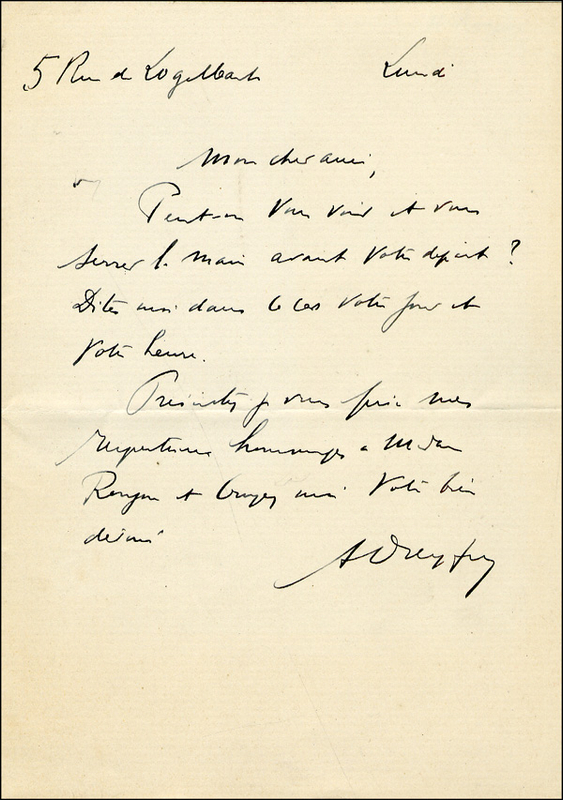 5 Rue de Logelbach Lundi
Mon cher ami,
Peut-on vous voir et vous
serrer la main avant votre départ ?
Dites moi dans le cas votre jour et
votre heure.
Présentez je vous prie mes
respectueux hommages à Madame
et croyez moi votre bien
dévoué
ADreyfus